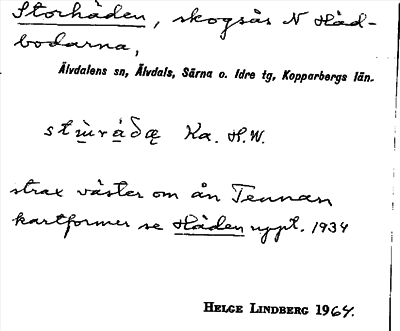 Storhåden, skogsås N Håd-
bodarna,
Älvdalens sn, Älvdals, Särna o. Idre tg, Kopparbergs län.
Ka. H.W.
strax väster om ån Tennan
kartformer se Håden uppt. 1934
HELGE LINDBERG 1964.